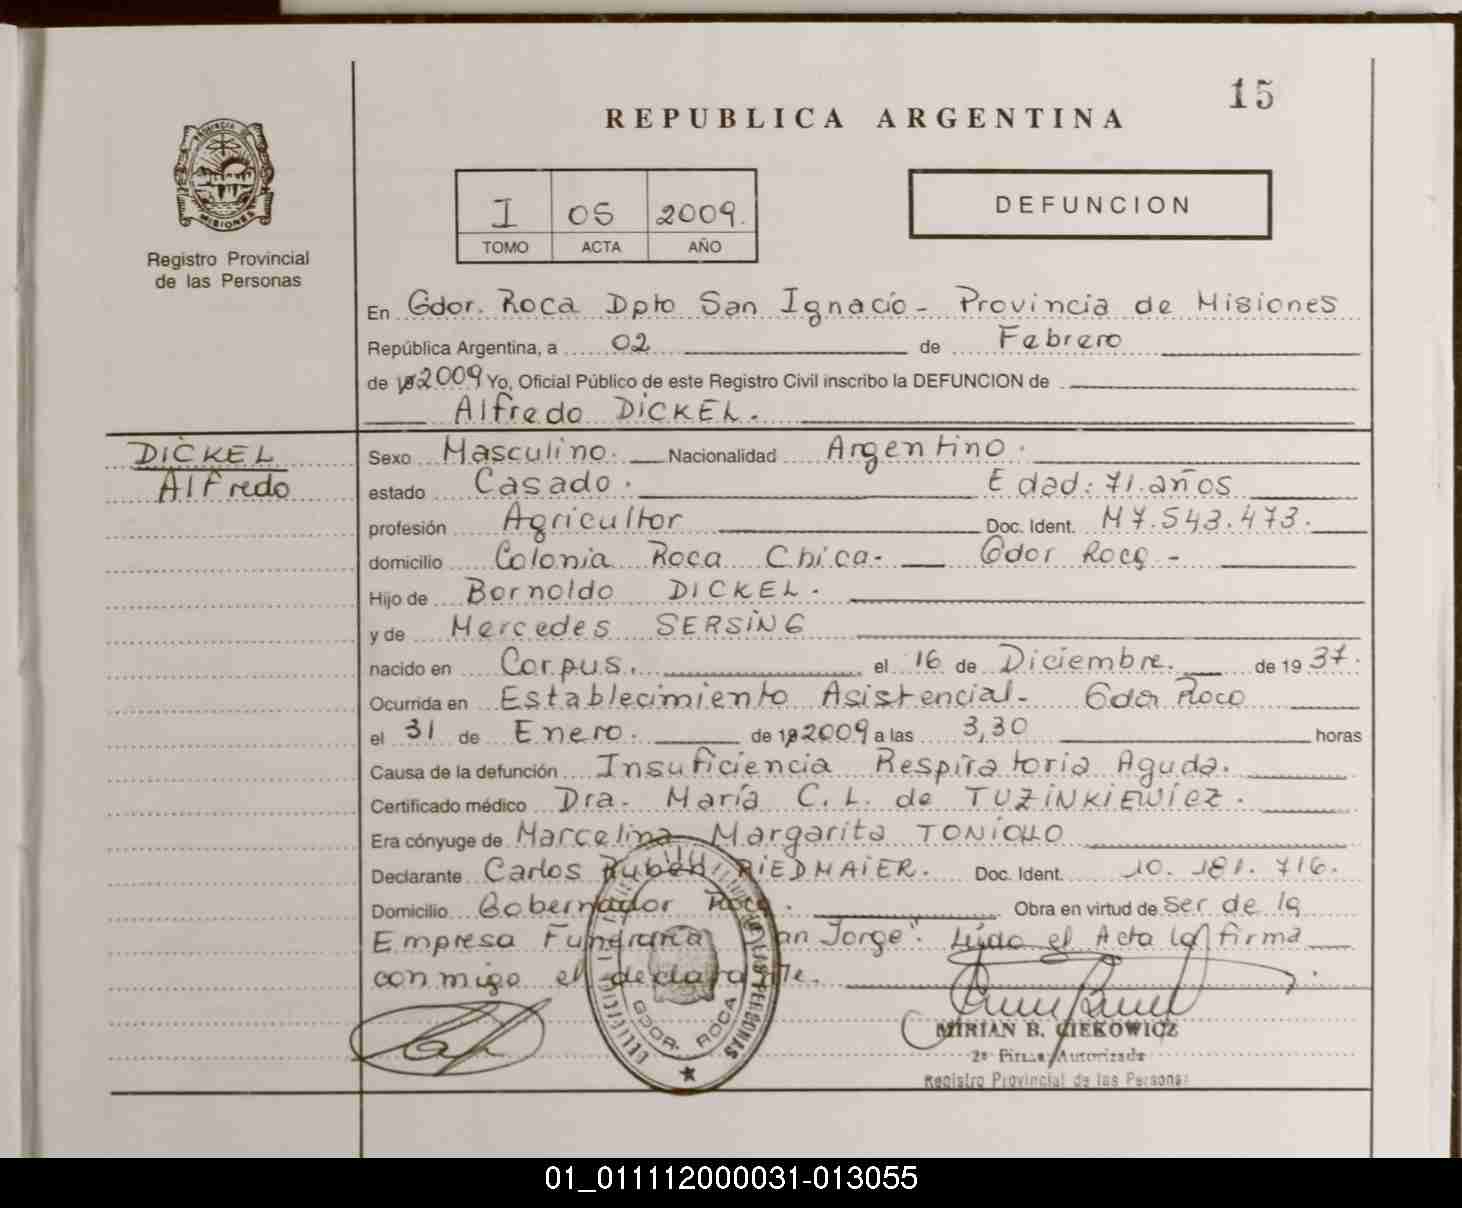 15
REPUBLICA ARGENTINA
I 05 2009.
TOMO ACTA AÑO
DEFUNCION
PROVINCIA DE MISIONES
Registro Provincial
de las Personas
En Gdor. Roca Dpto San Ignacio - Provincia de Misiones
República Argentina, a 02 de Febrero
de 2009 Yo, Oficial Público de este Registro Civil inscribo la DEFUNCION de
Alfredo DICKEL.
DICKEL
Alfredo
Sexo Masculino. Nacionalidad Argentino.
estado Casado. Edad: 71 años
profesión Agricultor Doc. Ident. M 7.543.473.
domicilio Colonia Roca Chica - Gdor Roca -
Hijo de Bornoldo DICKEL.
y de Mercedes SERSING
nacido en Corpus. el 16 de Diciembre. de 19 37.
Ocurrida en Establecimiento Asistencial - Gdor Roca
el 31 de Enero. de 2009 a las 3,30 horas
Causa de la defunción Insuficiencia Respiratoria Aguda.
Certificado médico Dra. María C. L. de TUZINKIEWICZ.
Era cónyuge de Marcelina Margarita TONIOLLO
Declarante Carlos Ruben RIEDMAIER. Doc. Ident. 10.181.716.
Domicilio Gobernador Roca. Obra en virtud de Ser de la
Empresa Funeraria "San Jorge". Leída el Acta la firma
conmigo el declarante.
GDOR. ROCA
MIRIAN B. CIEKOWICZ
2ª Firma Autorizada
Registro Provincial de las Personas
01_011112000031-013055